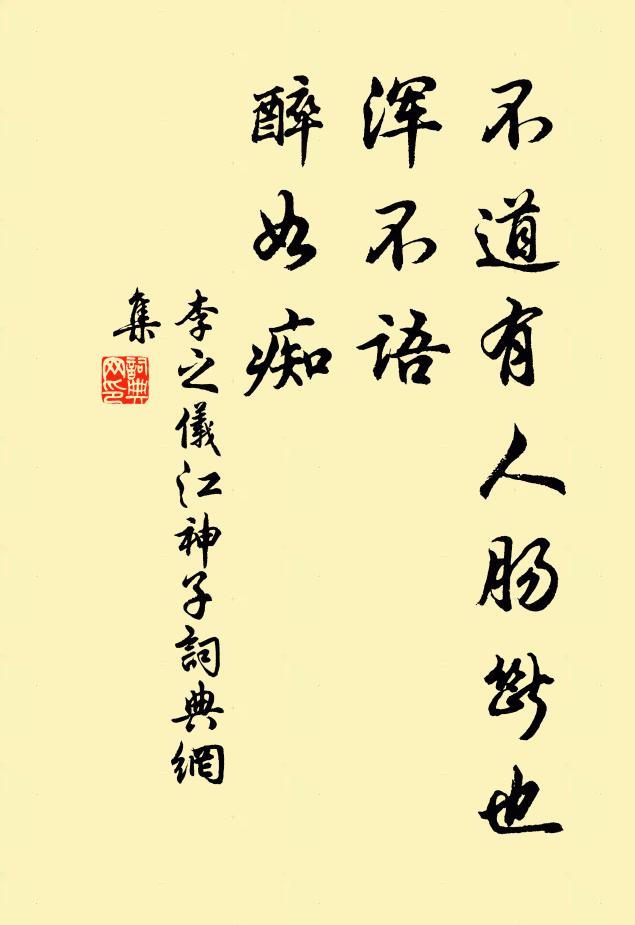 不道有人肠断也
浑不语
醉如痴
李之儀江神子詞典網
集
詞典
网印